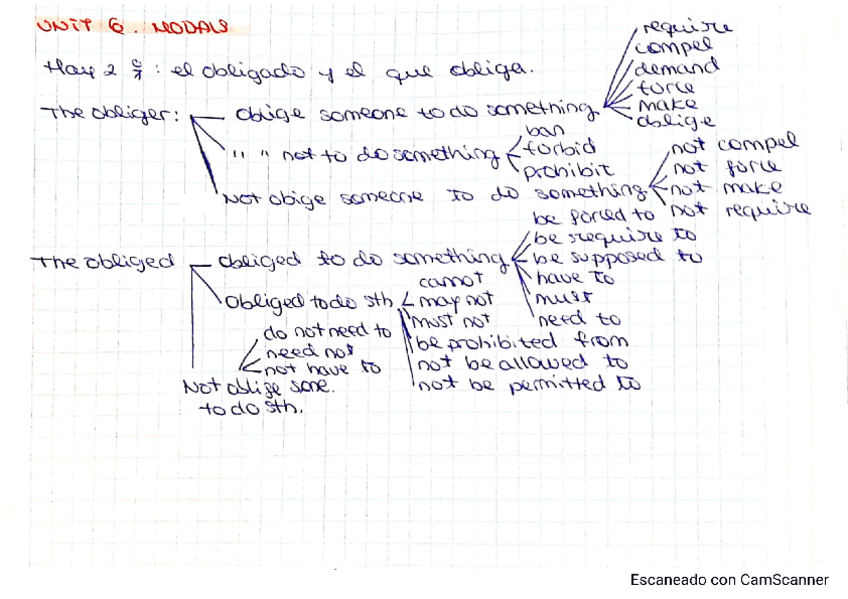 UNIT 6. MODALS
Hay 2 : el obligado y el que obliga.
The obliger:
oblige someone to do something
require
compel
demand
force
make
oblige
" " not to do something
ban
forbid
prohibit
Not obige someone to do something
not compel
not force
not make
not require
The obliged
obliged to do something
be forced to
be require to
be supposed to
have to
must
need to
Obliged to do sth
cannot
may not
must not
be prohibited from
not be allowed to
not be permitted to
do not need to
need not
not have to
Not oblige sone.
to do sth.
Escaneado con CamScanner